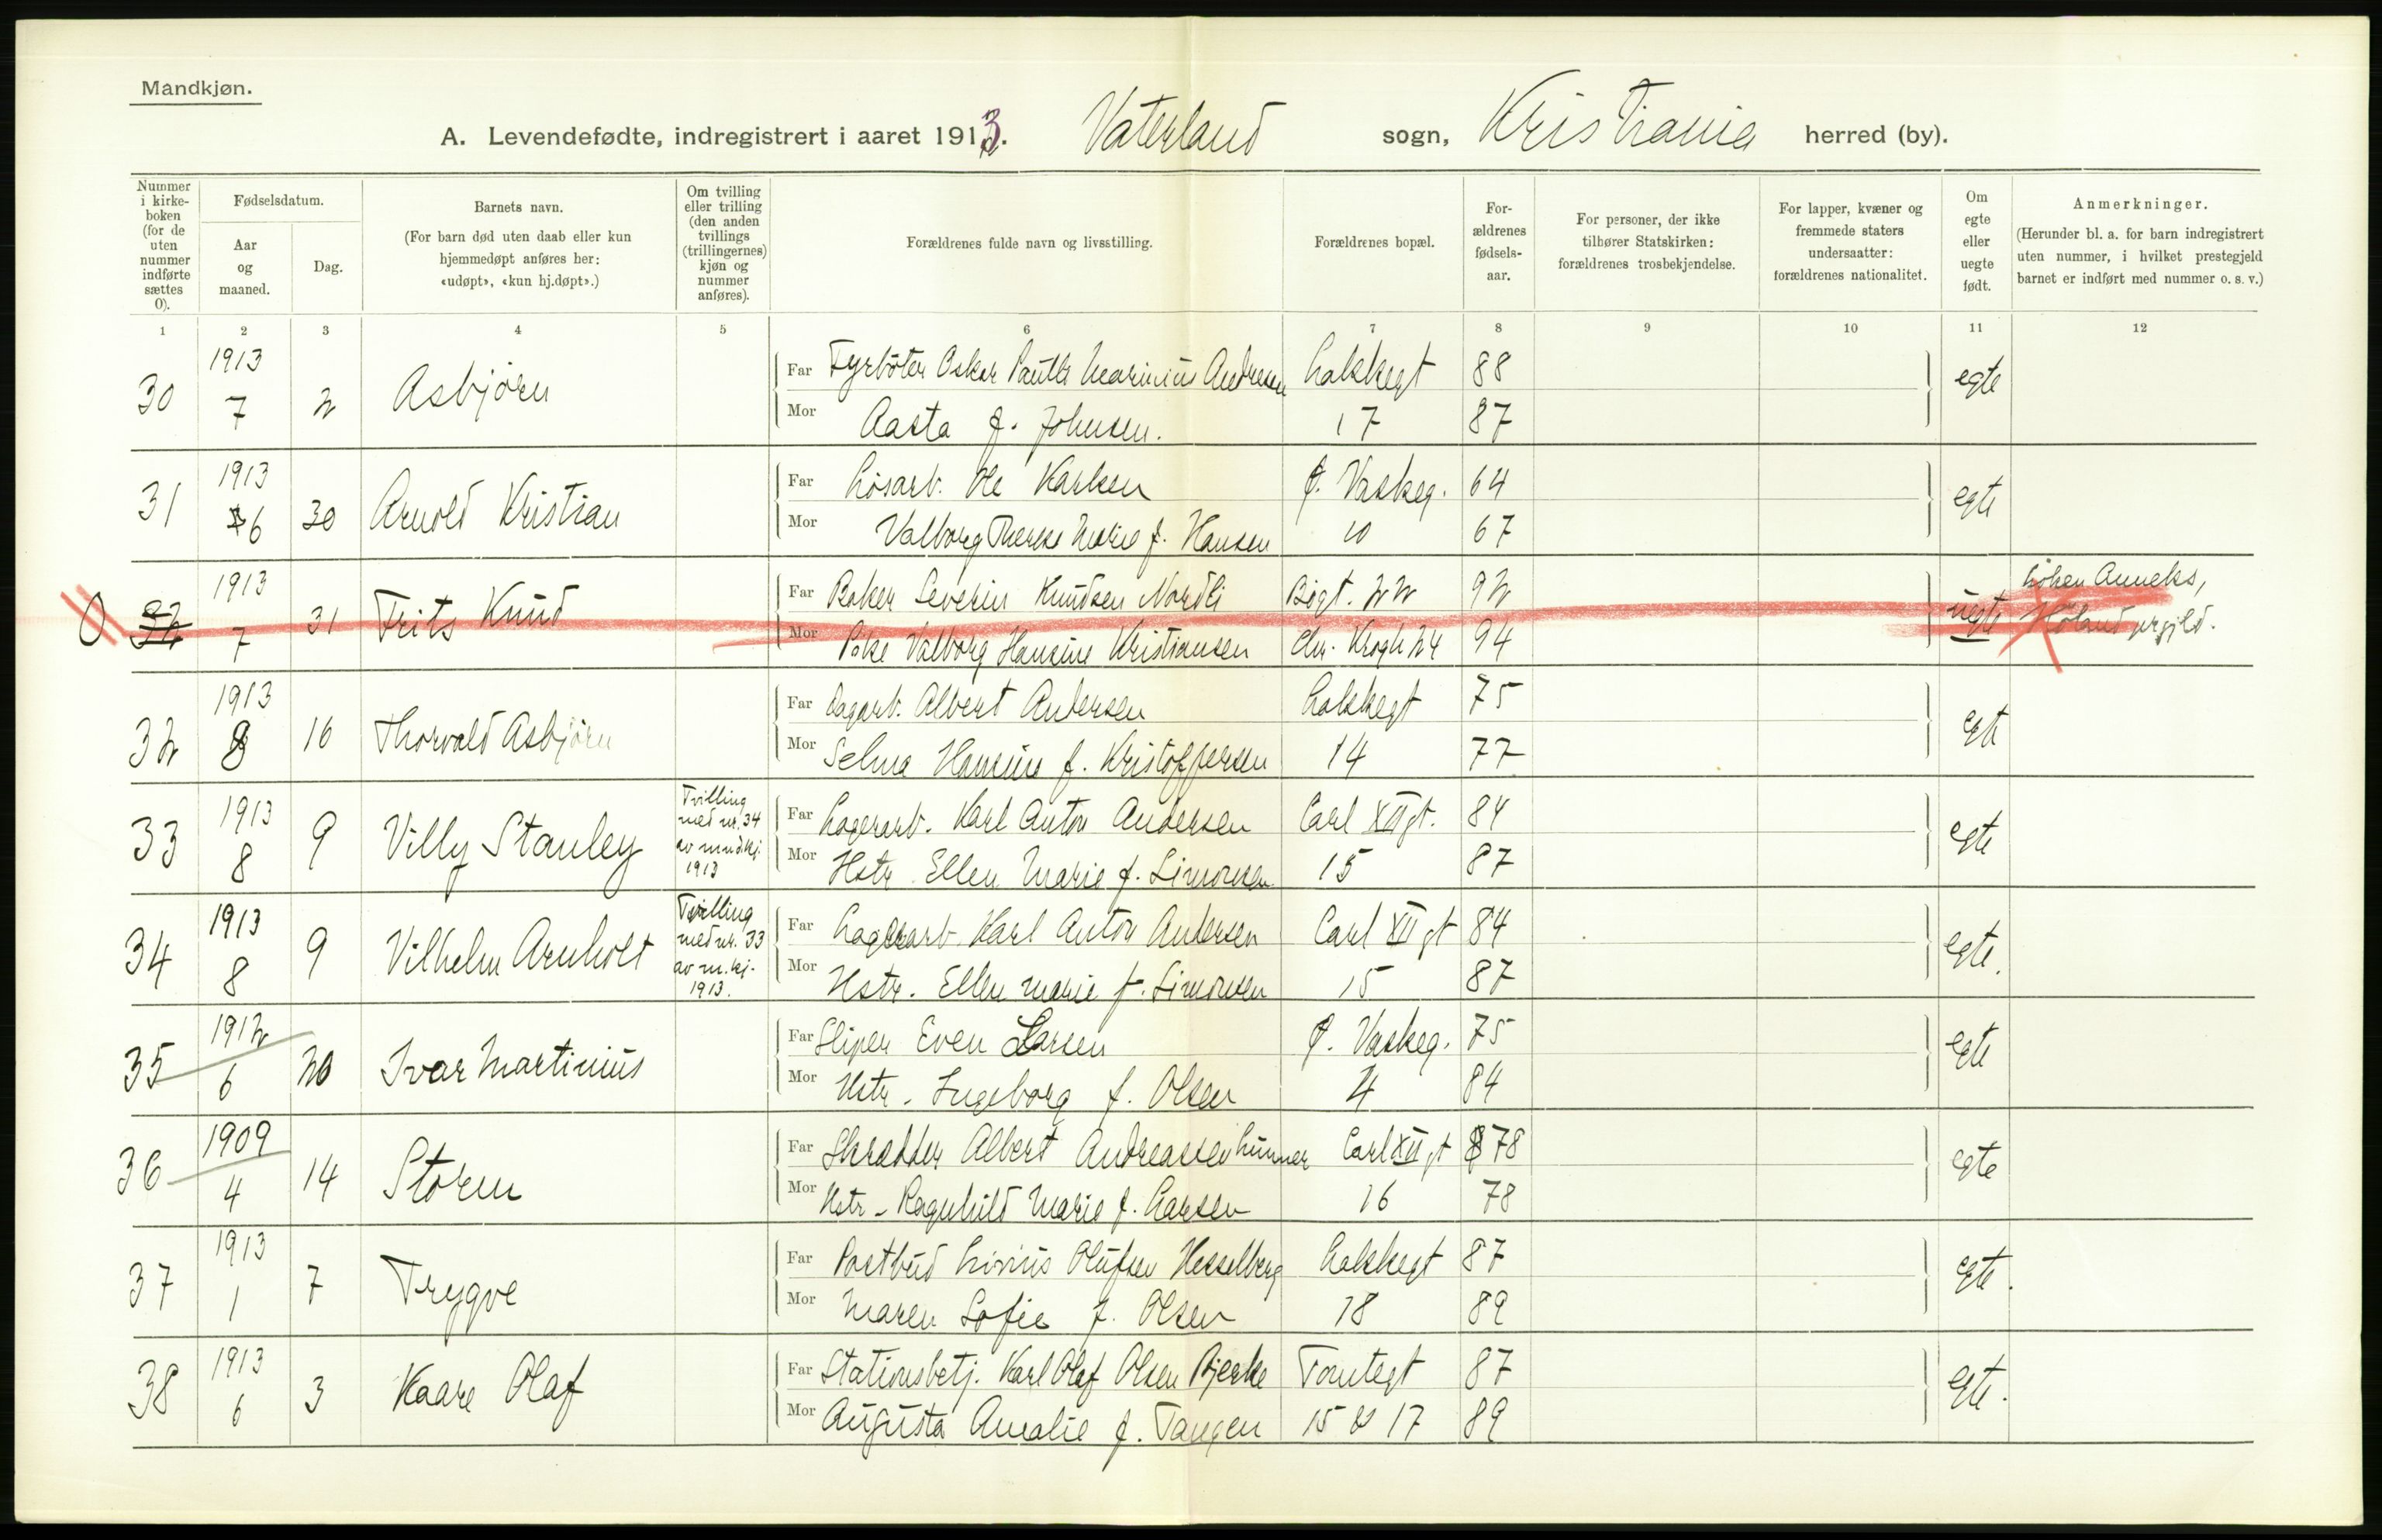 Mandkjøn.
A. Levendefødte, indregistrert i aaret 1913. Vaterland sogn, Kristiania herred (by).
Nummer i kirke-boken (for de uten nummer indførte sættes 0).
Fødselsdatum.
Aar og maaned.
Dag.
Barnets navn.
(For barn død uten daab eller kun hjemmedøpt anføres her: «udøpt», «kun hj.døpt».)
Om tvilling eller trilling (den anden tvillings (trillingernes) kjøn og nummer anføres).
Forældrenes fulde navn og livsstilling.
Forældrenes bopæl.
For-ældrenes fødsels-aar.
For personer, der ikke tilhører Statskirken: forældrenes trosbekjendelse.
For lapper, kvæner og fremmede staters undersaatter: forældrenes nationalitet.
Om egte eller uegte født.
Anmerkninger.
(Herunder bl. a. for barn indregistrert uten nummer, i hvilket prestegjeld barnet er indført med nummer o. s. v.)
1 2 3 4 5 6 7 8 9 10 11 12
30 1913 7 2 Asbjørn
Far Fyrbøter Oskar Marinius Andresen Lakkegt 88 egte
Mor Aasta f. Johnsen. 17 87
31 1913 6 30 Arnold Kristian
Far Løsarb. Ole Karlsen Ø. Vaskeg. 64 egte
Mor Valborg Therese Marie f. Hansen 10 67
0 32 1913 7 31 Frits Knud
Far Baker Severin Knudsen Nordli Bogt. 22 92 uegte Anneks,
Mor Pike Valborg Hansine Kristiansen Chr. Krogh 24 94 Høland prgjld.
32 1913 8 16 Thorvald Asbjørn
Far Dagarb. Albert Andersen Lakkegt 75 egte
Mor Selma Hansine f. Kristoffersen 14 77
33 1913 8 9 Villy Stanley
Tvilling med nr. 34 av mndkj. 1913
Far Lagerarb. Karl Anton Andersen Carl XII gt. 84 egte
Mor Hstr. Ellen Marie f. Simonsen 15 87
34 1913 8 9 Vilhelm Arnholt
Tvilling med nr. 33 av m.kj. 1913.
Far Lagerarb. Karl Anton Andersen Carl XII gt 84 egte.
Mor Hstr. Ellen Marie f. Simonsen 15 87
35 1912 6 20 Ivar Martinius
Far Sliper Even Larsen Ø. Vaskeg. 75 egte
Mor Hstr. Ingeborg f. Olsen 4 84
36 1909 4 14 Storm
Far Skrædder Albert Andreassen Lunner Carl XII gt 78 egte
Mor Hstr. Ragnhild Marie f. Larsen 16 78
37 1913 1 7 Trygve
Far Postbud Livius Olufsen Hesselberg Lakkegt 87 egte.
Mor Maren Sofie f. Olsen 18 89
38 1913 6 3 Kaare Olaf
Far Stationsbetj. Karl Olaf Olsen Bjerke Tomtegt 87 egte.
Mor Augusta Amalie f. Tangen 15 & 17 89